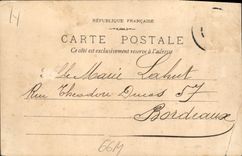 14
RÉPUBLIQUE FRANÇAISE
CARTE POSTALE
Ce côté est exclusivement réservé à l'adresse
Mlle Marie Lahut
Rue Théodore Ducos 57
Bordeaux
6614